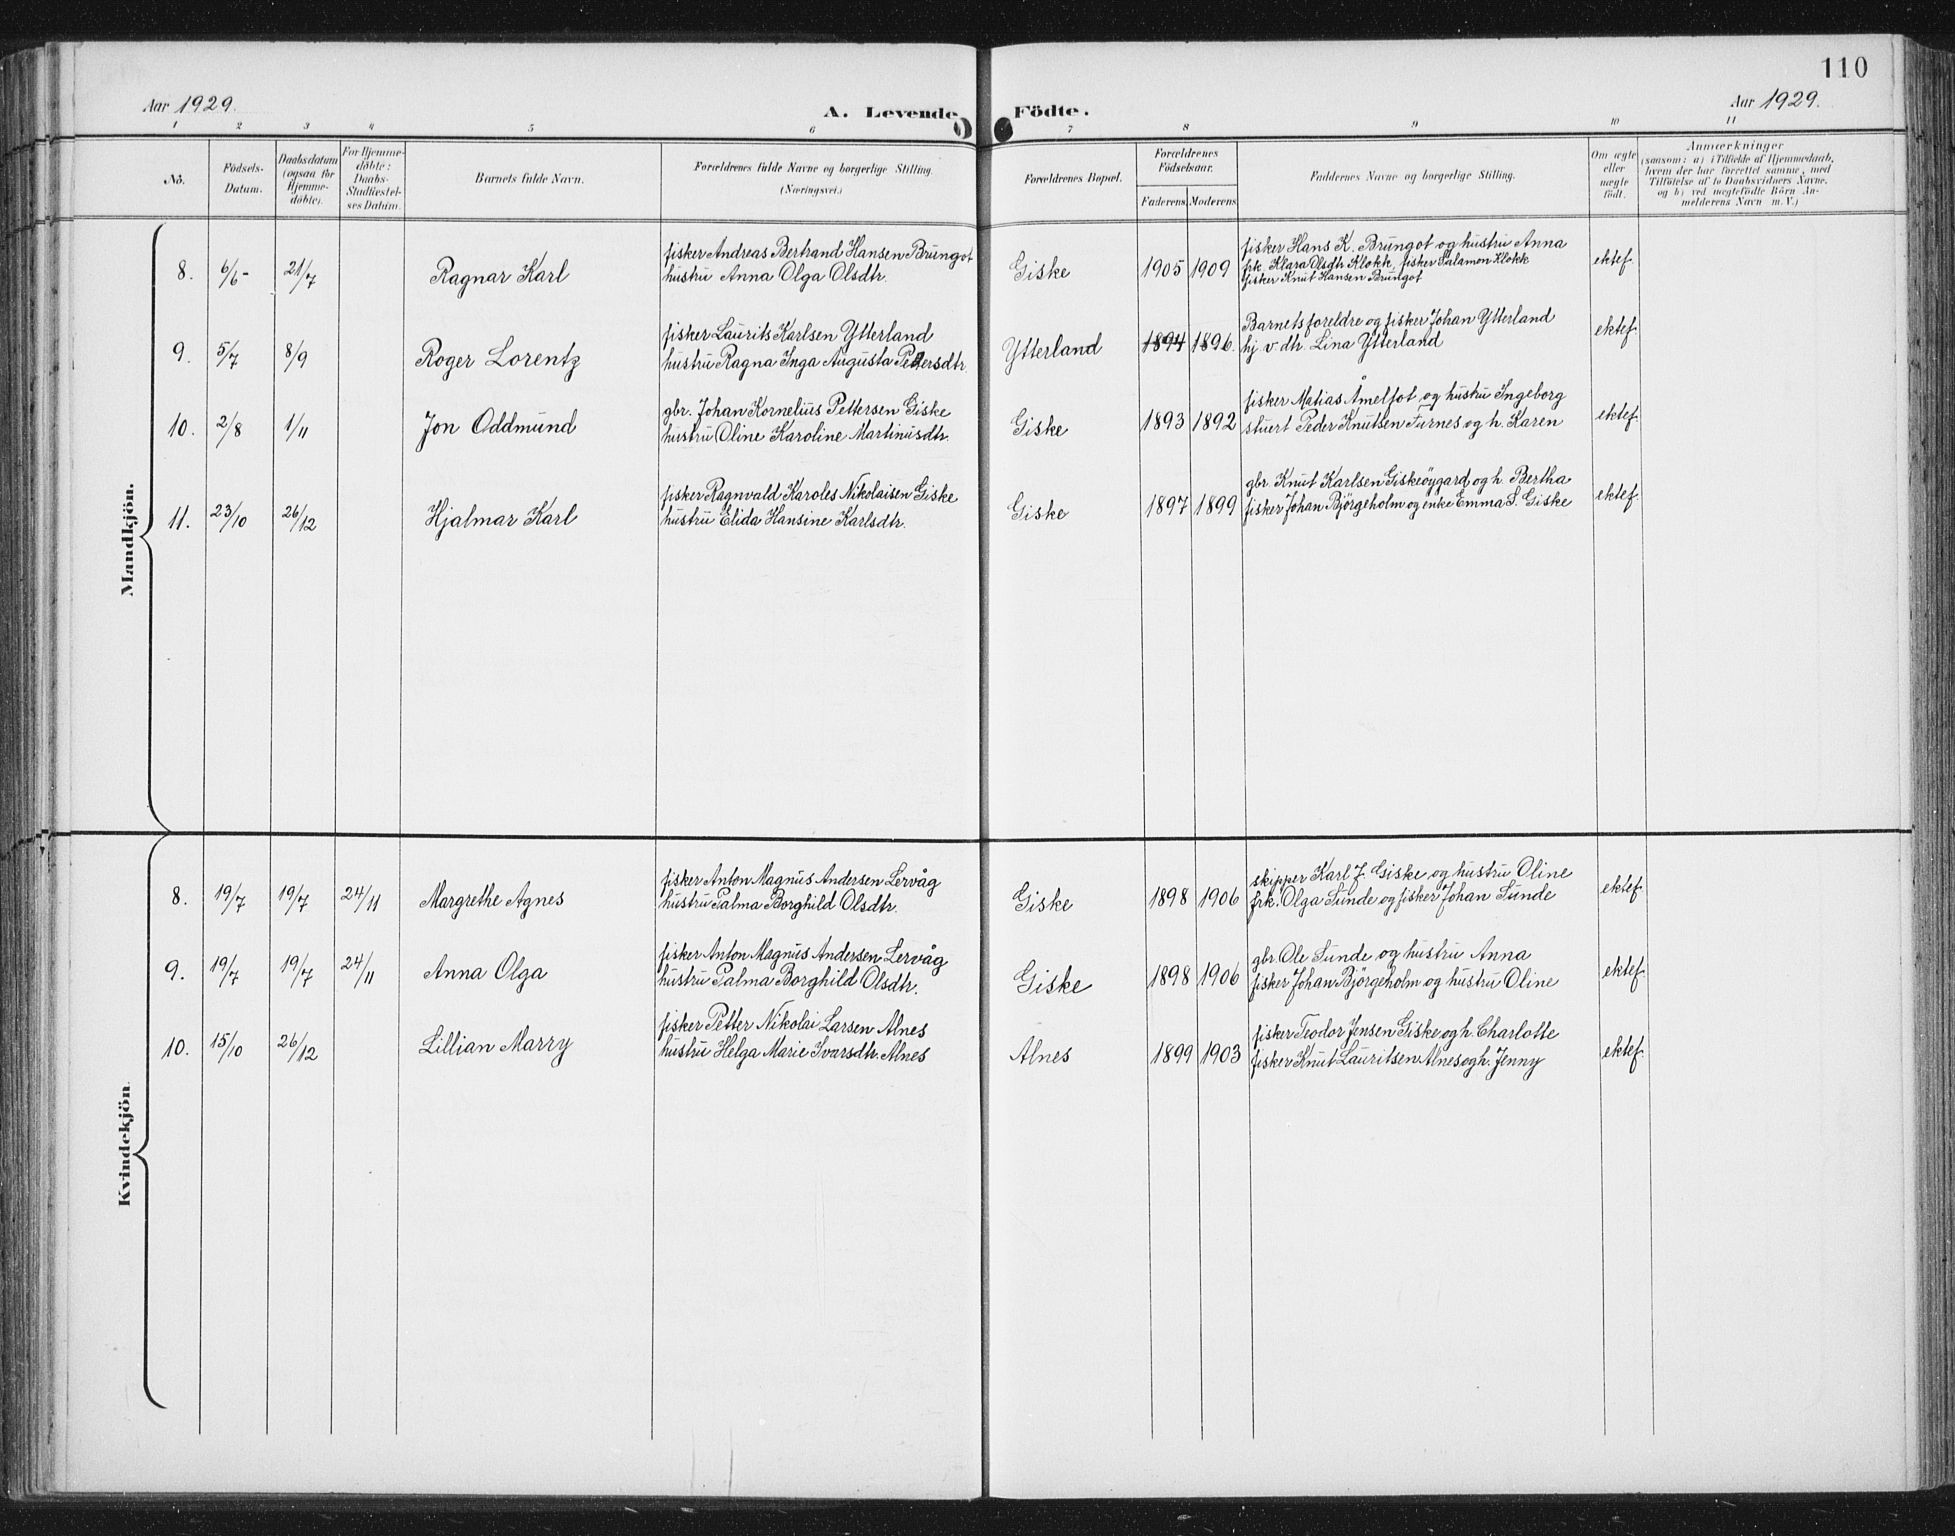 110
Aar 1929.
A. Levende Födte.
Aar 1929.
1 2 3 4 5 6 7 8 9 10 11
No.
Födsels-
Datum.
Daabsdatum
(ogsaa for
Hjemme-
döbte).
For Hjemme-
döbte:
Daabs-
Stadfæstel-
ses Datum.
Barnets fulde Navn.
Forældrenes fulde Navne og borgerlige Stilling.
(Næringsvei.)
Forældrenes Bopæl.
Forældrenes
Födselsaar.
Faderens. Moderens.
Faddernes Navne og borgerlige Stilling.
Om ægte
eller
uægte
födt.
Anmærkninger
(saasom: a) i Tilfælde af Hjemmedaab,
hvem der har forrettet samme, med
Tilföielse af to Daabsvidners Navne,
og b) ved uægtefödte Börn An-
melderens Navn m. V.)
Mandkjön.
8. 6/6- 21/7 Ragnar Karl
fisker Andreas Bertrand Hansen Brungot
hustru Anna Olga Olsdtr.
Giske 1905 1909
fisker Hans K. Brungot og hustru Anna
frk. Klara Olsdtr Klokk, fisker Salamon Klokk
fisker Knut Hansen Brungot
ektef.
9. 5/7 8/9 Roger Lorentz
fisker Laurits Karlsen Ytterland
hustru Ragna Inga Augusta Pedersdtr.
Ytterland 1894 1896.
Barnets foreldre og fisker Johan Ytterland
hj v. dtr. Lina Ytterland
ektef.
10. 2/8 1/11 Jon Oddmund
gbr. Johan Kornelius Pettersen Giske
hustru Oline Karoline Martinusdtr.
Giske 1893 1892
fisker Matias Åmelfot og hustru Ingeborg
stuert Peder Knutsen Furnes og h. Karen
ektef.
11. 23/10 26/12 Hjalmar Karl
fisker Ragnvald Karoles Nikolaisen Giske
hustru Elida Hansine Karlsdtr.
Giske 1897 1899
gbr. Knut Karlsen Giskeöygard og h. Bertha
fisker Johan Björgeholm og enke Emma S. Giske
ektef.
Kvindekjön.
8. 19/7 19/7 24/11 Margrethe Agnes
fisker Anton Magnus Andersen Lervåg
hustru Palma Borghild Olsdtr.
Giske 1898 1906
skipper Karl J. Giske og hustru Oline
frk. Olga Sunde og fisker Johan Sunde
ektef.
9. 19/7 19/7 24/11 Anna Olga
fisker Anton Magnus Andersen Lervåg
hustru Palma Borghild Olsdtr.
Giske 1898 1906
gbr. Ole Sunde og hustru Anna
fisker Johan Björgeholm og hustru Oline
ektef.
10. 15/10 26/12 Lillian Marry
fisker Petter Nikolai Larsen Alnes
hustru Helga Marie Ivarsdtr. Alnes
Alnes 1899 1903
fisker Teodor Jensen Giske og h. Charlotte
fisker Knut Lauritsen Alnes og h. Jenny
ektef.